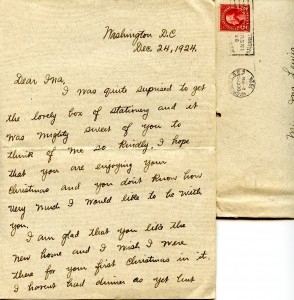 Washington D.C
Dec 24, 1924.
Dear Ina,
I was quite suprised to get
the lovely box of stationery and it
was mighty sweet of you to
think of me so kindly. I hope
that you are enjoying your
Christmas and you don't know how
very much I would like to be with
you.
I am glad that you like the
new home and I wish I were
there for your first Christmas in it.
I haven't had dinner as yet but
Miss Ina Lewis